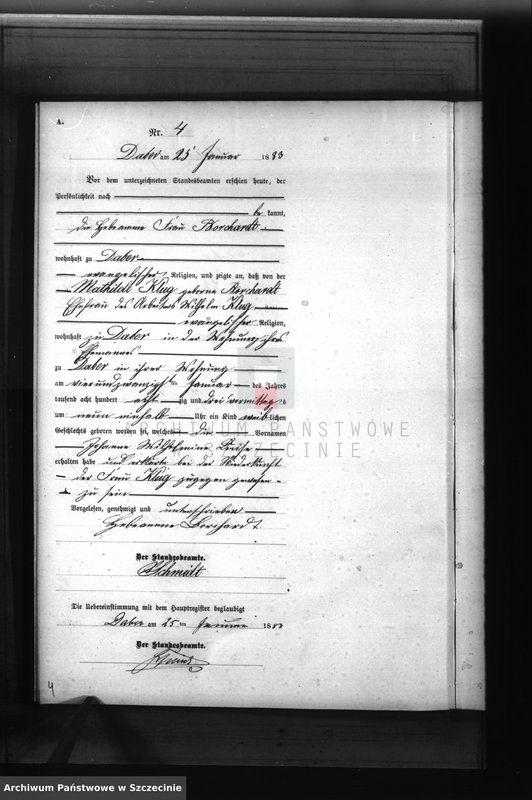 A.
Nr. 4
Daber am 25 Januar 1883
Vor dem unterzeichneten Standesbeamten erschien heute, der
Persönlichkeit nach
be kannt,
die Hebeamme Frau Borchardt
wohnhaft zu Daber
evangelischer Religion, und zeigte an, daß von der
Mathilde Klug geborne Borchardt
Ehefrau des Arbeiters Wilhelm Klug
evangelischer Religion,
wohnhaft zu Daber in der Wohnung ihres
Ehemannes
zu Daber in ihrer Wohnung
am vierundzwanzigsten Januar des Jahres
tausend acht hundert achtzig und drei Vormittags
um neun einhalb Uhr ein Kind weiblichen
Geschlechts geboren worden sei, welches die Vornamen
Johanne Wilhelmine Luise
erhalten habe und erklärte bei der Niederkunft
der Frau Klug zugegen gewesen
zu sein
Vorgelesen, genehmigt und unterschrieben
Hebeamme Borchardt.
Der Standesbeamte.
Schmidt
Die Uebereinstimmung mit dem Hauptregister beglaubigt
Daber am 25 ten Januar 1883
Der Standesbeamte.
4
ARCHIWUM PAŃSTWOWE
W SZCZECINIE
Archiwum Państwowe w Szczecinie